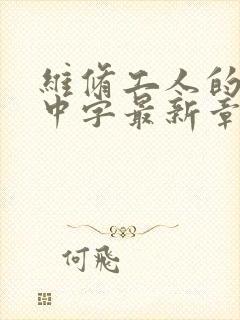 維修工人的
中字最新章
何飛